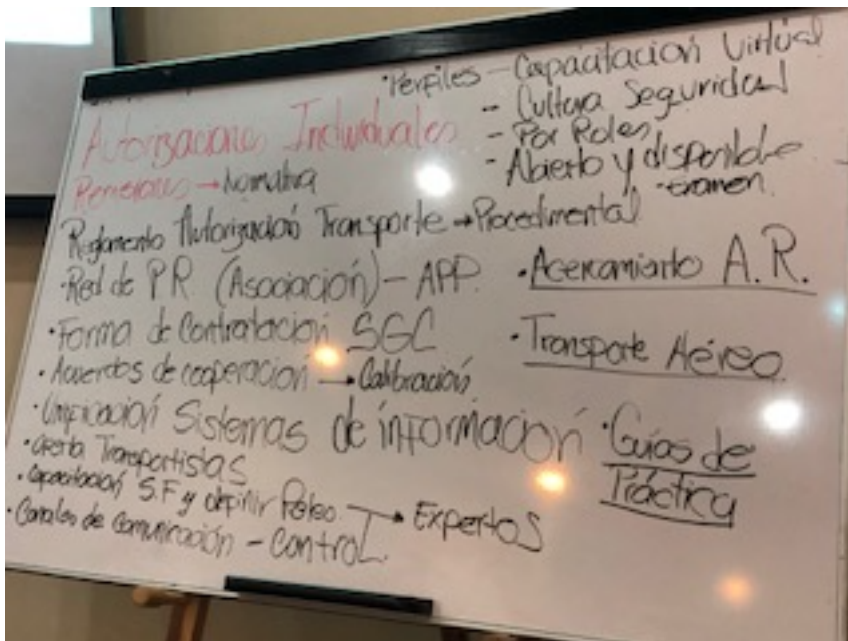 ·Perfiles - Capacitación Virtual
- Cultura Seguridad
- Por Roles
- Abierto y disponible
- examen.
Autorizaciones Individuales
→ Normativa
Reglamento Autorización Transporte → Procedimental
·Red de PR (Asociación) - APP.
·Forma de Contratación SGC
·Acuerdos de cooperación → Calibración
·Unificación Sistemas de información
·Oferta Transportistas
·Capacitación S.F y definir Roles → Expertos
·Canales de comunicación - Control.
·Acercamiento A.R.
·Transporte Aéreo
·Guías de
Práctica